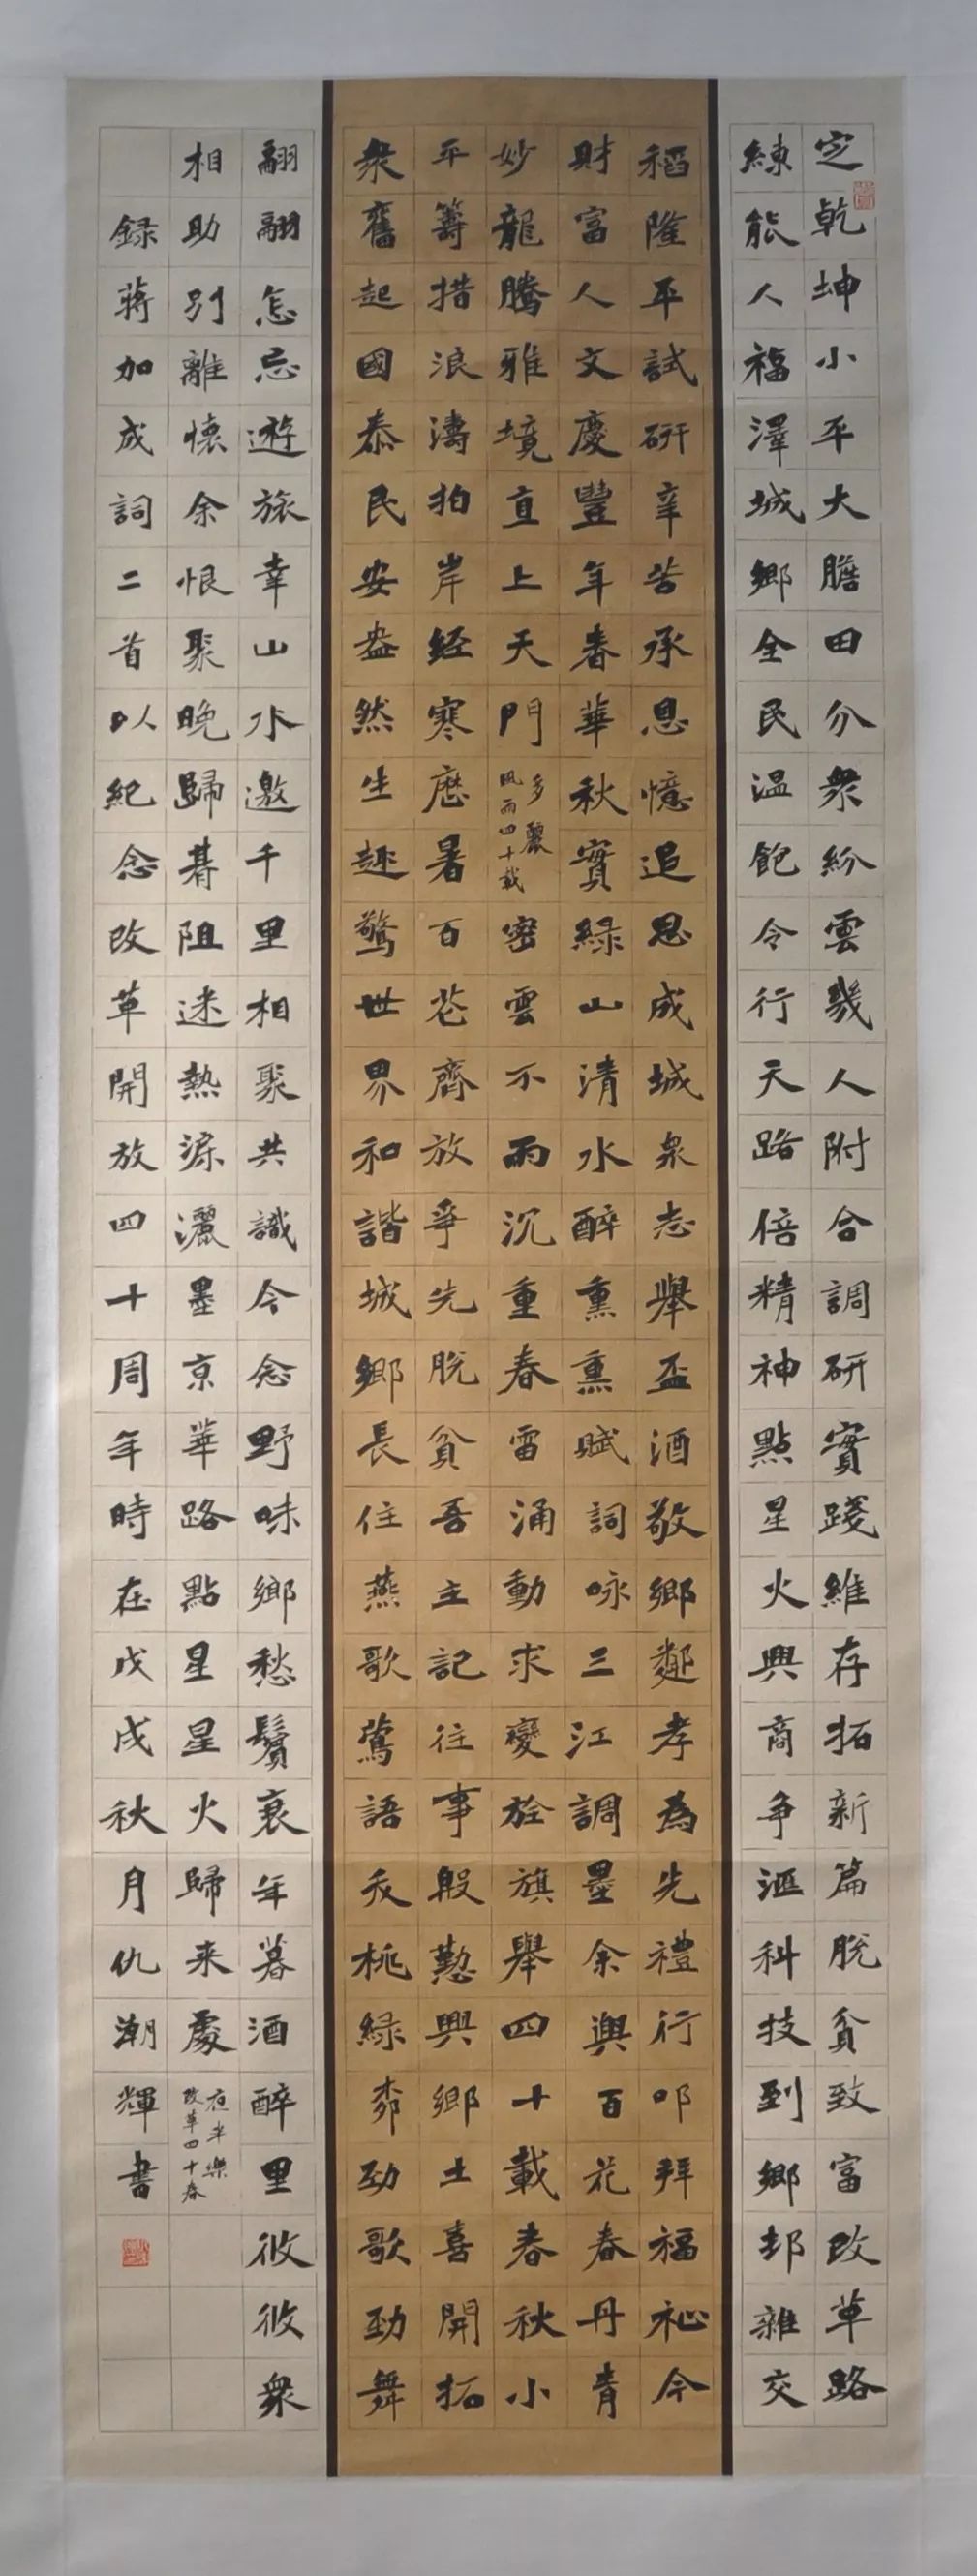 定乾坤小平大膽田分衆紛雲幾人附合調研實踐維存拓新篇脫貧致富改革路
練能人福澤城鄉全民温飽令行天路倍精神點星火興商爭滙科技到鄉邨雜交
稻隆平試研辛苦承恩憶追思成城衆志舉盃酒敬鄉鄰孝為先禮行叩拜福祉今
財富人文慶豐年春華秋實綠山清水醉熏熏賦詞咏三江調墨余輿百花春丹青
妙龍騰雅境直上天門
多麗
風雨四十載
密雲不雨沉重春雷涌動求變旌旗舉四十載春秋小
平籌措浪濤拍岸經寒歷暑百花齊放爭先脫貧吾主記往事殷懃興鄉土喜開拓
衆舊起國泰民安盎然生趣驚世界和諧城鄉長住燕歌鶯語夭桃綠柰勁歌勁舞
翩翩怎忘遊旅幸山水邀千里相聚共識今念野味鄉愁鬢衰年暮酒醉里彼彼衆
相助別離懷余恨聚晚歸暮阻迷熱淚灑墨京華路點星星火歸来處
夜半樂
改革四十春
錄蔣加成詞二首以紀念改革開放四十周年時在戊戌秋月仇潮輝書